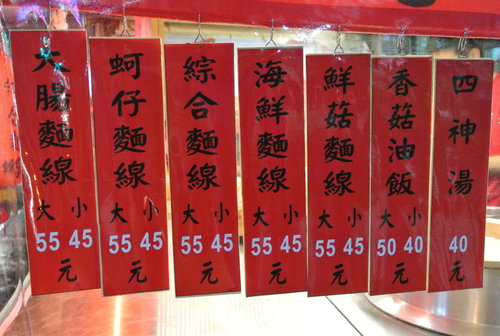 大腸麵線
大 小
55 45
元
蚵仔麵線
大 小
55 45
元
綜合麵線
大 小
55 45
元
海鮮麵線
大 小
55 45
元
鮮菇麵線
大 小
55 45
元
香菇油飯
大 小
50 40
元
四神湯
40
元